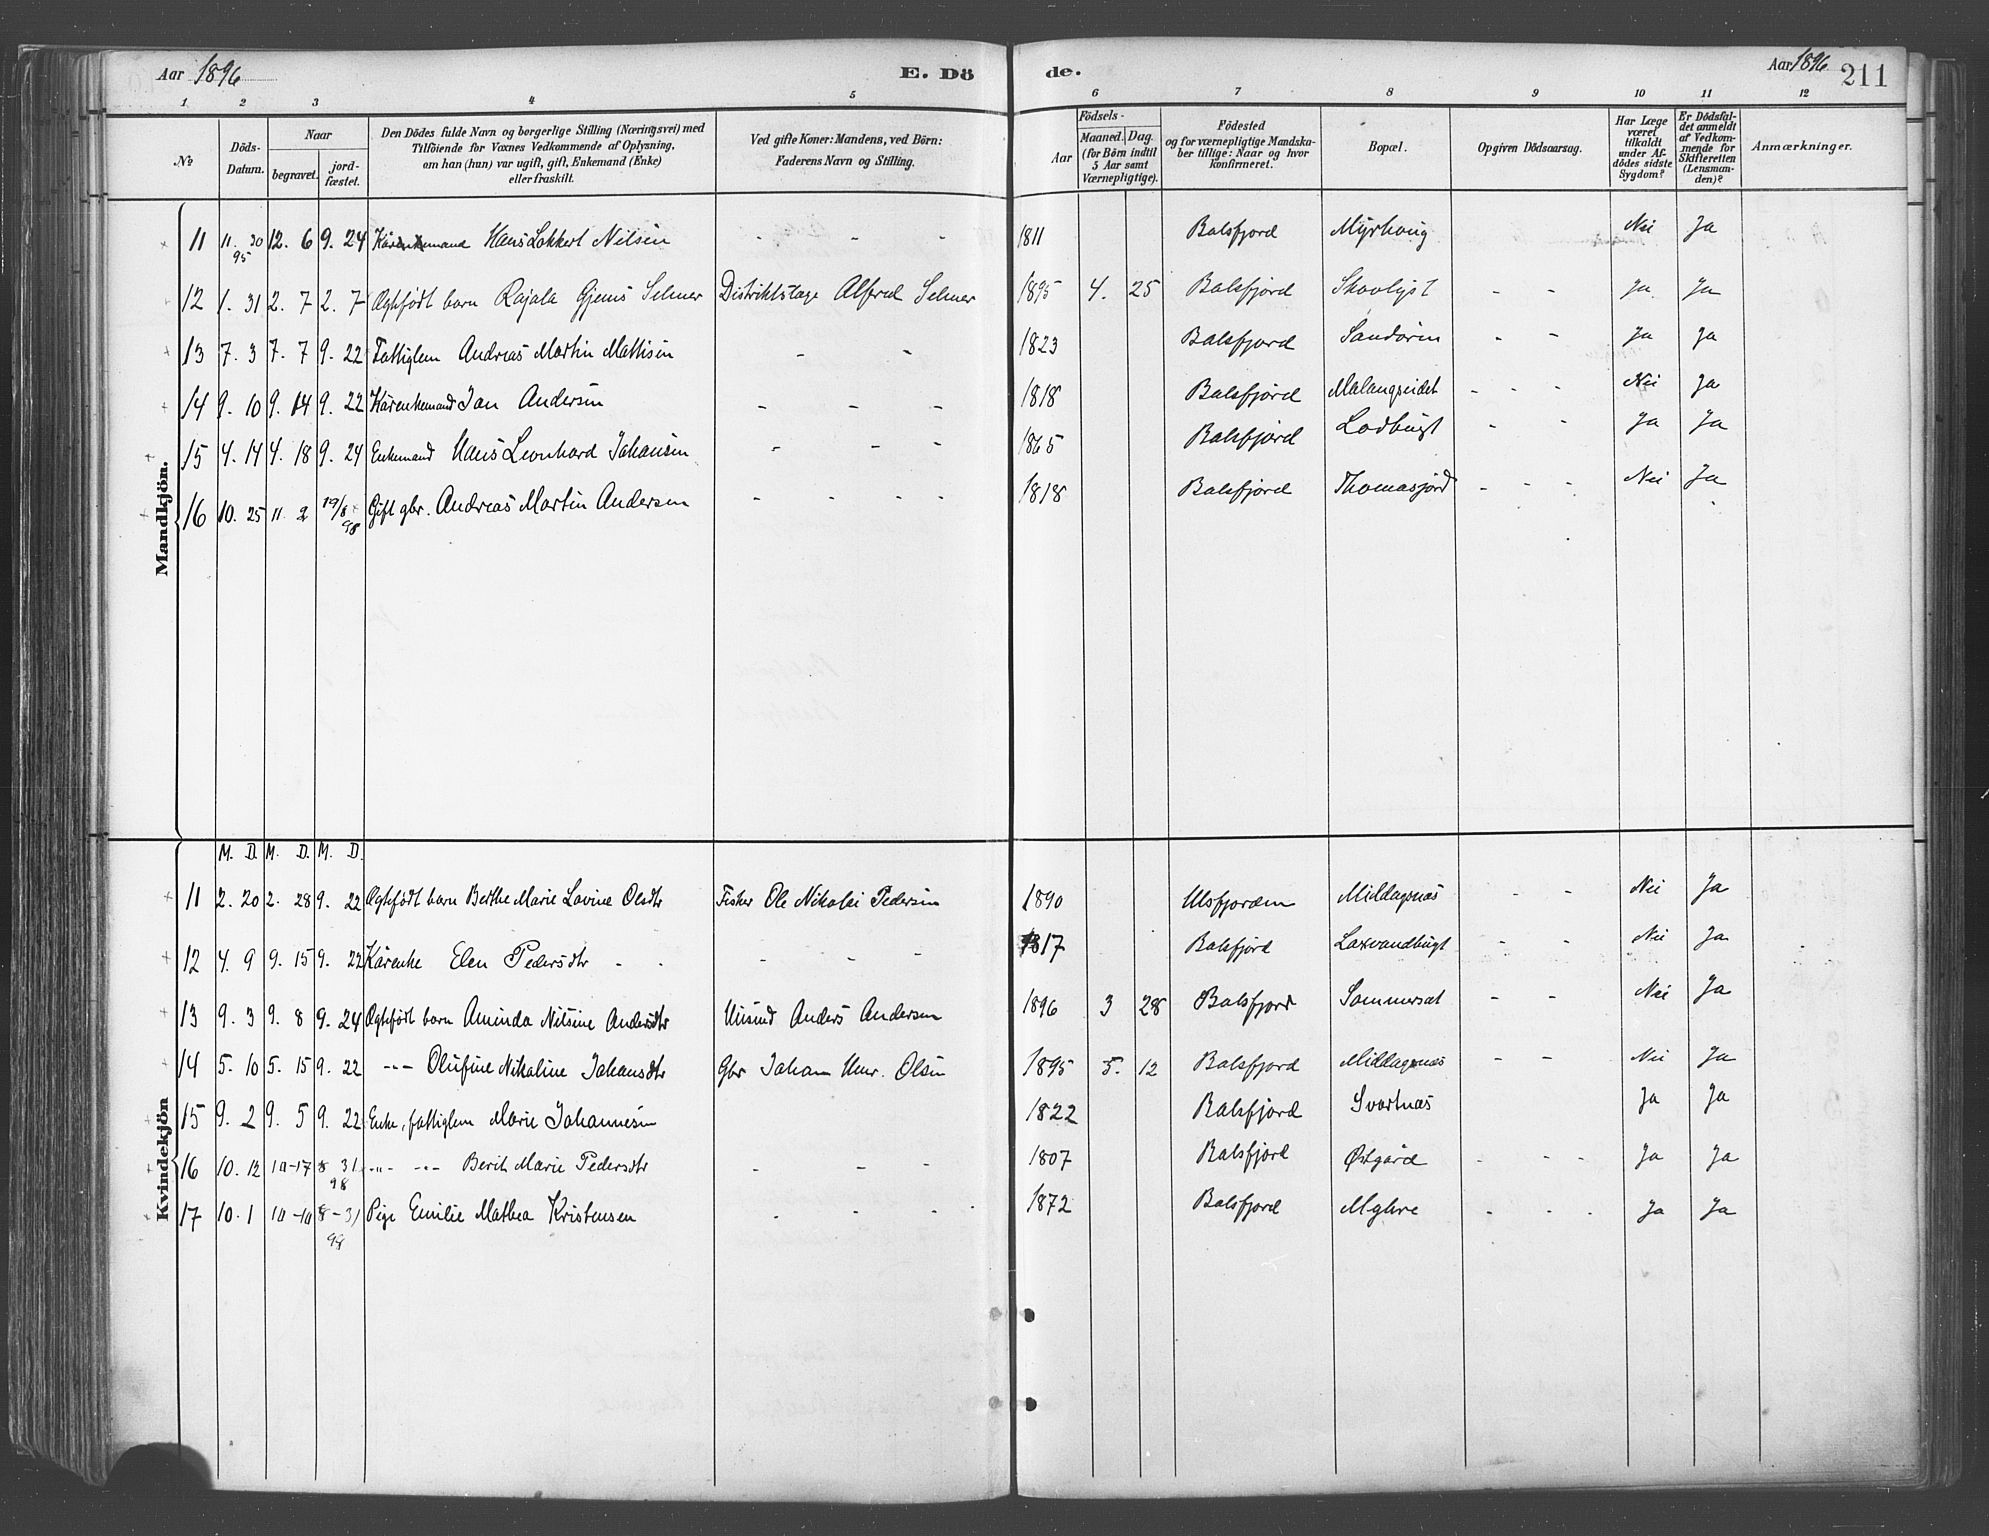 Aar 1896 E. Dö de. Aar 1896 211
1 2 3 4 5 6 7 8 9 10 11 12
№ Döds-Datum. Naar begravet. jordfæstet. Den Dödes fulde Navn og borgerlige Stilling (Næringsvei) med Tilföiende for Voxnes Vedkommende af Oplysning, om han (hun) var ugift, gift, Enkemand (Enke) eller fraskilt. Ved gifte Koner: Mandens, ved Börn: Faderens Navn og Stilling. Födsels- Aar Maaned. Dag. (for Börn indtil 5 Aar samt Værnepligtige). Födested og for værnepligtige Mandskaber tillige: Naar og hvor konfirmeret. Bopæl. Opgiven Dödsaarsag. Har Læge været tilkaldt under Afdödes sidste Sygdom? Er Dödsfaldet anmeldt af Vedkommende for Skifteretten (Lensmanden)? Anmærkninger.
Mandkjön.
11 11. 30 95 12. 6 9. 24 Hans Lokkert Nilsen - - - 1811 Balsfjord Myrhoug Nei Ja
12 1. 31 2. 7 2. 7 Ogtefödt barn Rajala Gjems Selmer Distriktslæge Alfred Selmer 1895 4. 25 Balsfjord Skovlyst - - Ja Ja
13 7. 3 7. 7 9. 22 Fattiglem Andreas Martin Mattisen - - 1823 Balsfjord Sandøren - - Ja Ja
14 9. 10 9. 14 9. 22 Kårenkemand Jan Andersen - - - 1818 Balsfjord Malangseidet - - - Nei Ja
15 4. 14 4. 18 9. 24 Enkemand Hans Leonhard Johansen - - - 1865 Balsfjord Lodbugt - - Ja Ja
16 10. 25 11. 2 19/8 98 Gift gbr. Andreas Martin Andersen - - - - 1818 Balsfjord Thomasjord - - - Nei Ja
Kvindekjön
M. D. M. D. M. D.
11 2. 20 2. 28 9. 22 Ogtefödt barn Berthe Marie Lovine Olsdtr Fisker Ole Nikolai Pedersen 1890 Ulsfjorden Middagsnæs - - Nei Ja
12 4. 9 9. 15 9. 22 Kårenke Elen Pedersdtr - - - - - 1817 Balsfjord Laxvandbugt - - Nei Ja
13 9. 3 9. 8 9. 24 Ogtefödt barn Aminda Nilsine Andersdtr Anders Andersen 1896 3 28 Balsfjord Sommersæt - - Nei Ja
14 5. 10 5. 15 9. 22 -"- Olufine Nikoline Johansdtr Gbr Johan Olsen 1895 5. 12 Balsfjord Middagsnæs - - Nei Ja
15 9. 2 9. 5 9. 22 Enke, fattiglem Marie Johannesen 1822 Balsfjord Svartnæs Ja Ja
16 10. 12 10-17 8 31 98 -"- -"- Berit Marie Pedersdtr - - - 1807 Balsfjord Østgård - - - Ja Ja
17 10. 1 10-10 8-31 98 Pige Emilie Mathea Kristensen - - - 1872 Balsfjord - - - Ja Ja